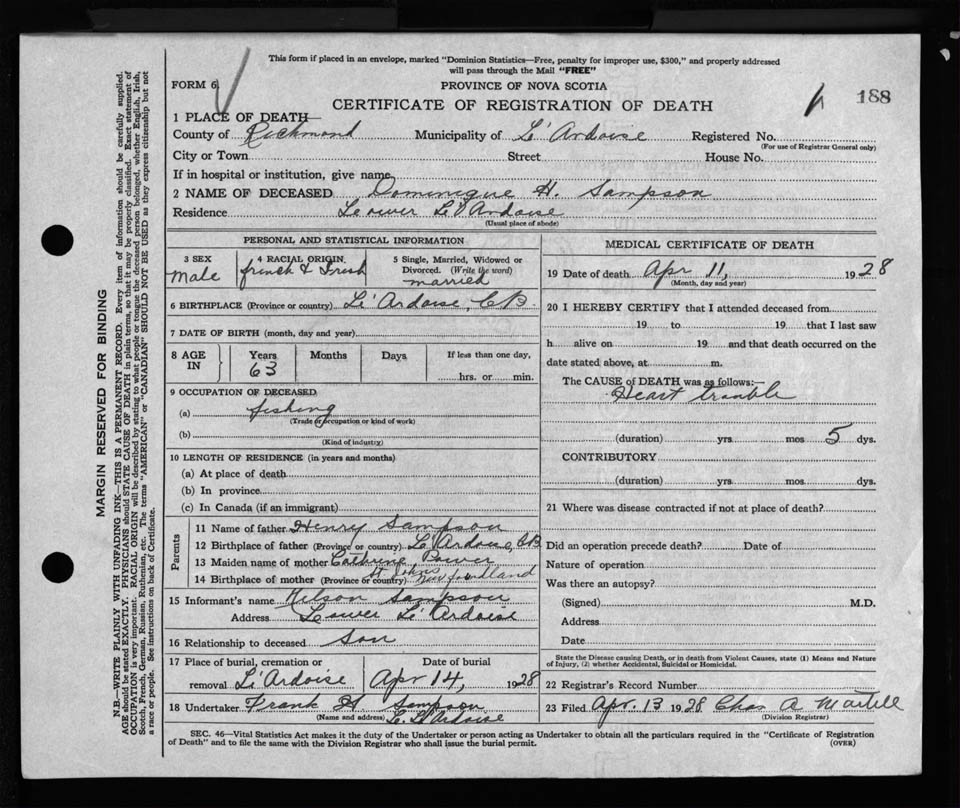 This form if placed in an envelope, marked "Dominion Statistics—Free, penalty for improper use, $300," and properly addressed
will pass through the Mail "FREE"
FORM 6
PROVINCE OF NOVA SCOTIA
CERTIFICATE OF REGISTRATION OF DEATH
188
1 PLACE OF DEATH—
County of Richmond Municipality of L'Ardoise Registered No.
(For use of Registrar General only)
City or Town Street House No.
If in hospital or institution, give name
2 NAME OF DECEASED Dominique H. Sampson
Residence Leower L'Ardoise
(Usual place of abode)
PERSONAL AND STATISTICAL INFORMATION
3 SEX 4 RACIAL ORIGIN. 5 Single, Married, Widowed or
Divorced. (Write the word)
Male french & Irish married
6 BIRTHPLACE (Province or country) L'Ardoise, CB.
7 DATE OF BIRTH (month, day and year)
8 AGE IN Years Months Days If less than one day,
63 hrs. or min.
9 OCCUPATION OF DECEASED
(a) fishing
(Trade or occupation or kind of work)
(b)
(Kind of industry)
10 LENGTH OF RESIDENCE (in years and months)
(a) At place of death
(b) In province
(c) In Canada (if an immigrant)
Parents
11 Name of father Henry Sampson
12 Birthplace of father (Province or country) L'Ardoise, CB
13 Maiden name of mother Catherine Power
14 Birthplace of mother (Province or country) St Johns Newfoundland
15 Informant's name Wilson Sampson
Address Leower L'Ardoise
16 Relationship to deceased Son
17 Place of burial, cremation or Date of burial
removal L'Ardoise Apr 14, 1928
18 Undertaker Frank H Sampson
(Name and address) L. L'Ardoise
MEDICAL CERTIFICATE OF DEATH
19 Date of death Apr 11, 1928
(Month, day and year)
20 I HEREBY CERTIFY that I attended deceased from
19 to 19 that I last saw
h alive on 19 and that death occurred on the
date stated above, at m.
The CAUSE of DEATH was as follows:—
Heart trouble
(duration) yrs mos 5 dys.
CONTRIBUTORY
(duration) yrs mos dys.
21 Where was disease contracted if not at place of death?
Did an operation precede death? Date of
Nature of operation
Was there an autopsy?
(Signed) M.D.
Address
Date
State the Disease causing Death, or in death from Violent Causes, state (1) Means and Nature
of Injury, (2) whether Accidental, Suicidal or Homicidal.
22 Registrar's Record Number
23 Filed Apr. 13 1928 Chas A Martell
(Division Registrar)
SEC. 46—Vital Statistics Act makes it the duty of the Undertaker or person acting as Undertaker to obtain all the particulars required in the "Certificate of Registration
of Death" and to file the same with the Division Registrar who shall issue the burial permit.
(OVER)
MARGIN RESERVED FOR BINDING
N.B.—WRITE PLAINLY WITH UNFADING INK—THIS IS A PERMANENT RECORD. Every item of information should be carefully supplied.
AGE should be stated EXACTLY. PHYSICIANS should STATE CAUSE OF DEATH in plain terms, so that it may be properly classified. Exact statement of
OCCUPATION is very important. RACIAL ORIGIN will be described by stating to what people or tongue the deceased person belonged, whether English, Irish,
Scotch, French, German, Russian, Ruthenian, etc. The terms "AMERICAN" or "CANADIAN" SHOULD NOT BE USED as they express citizenship but not
a race or people. See instructions on back of Certificate.